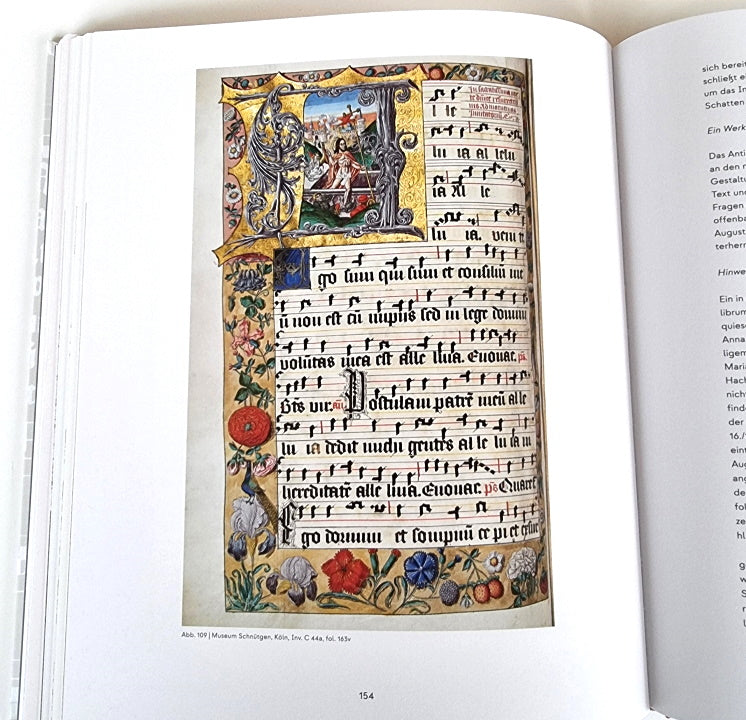 l le
lu ia al lelu
ia Al le
lu ia. venit
Ego sum qui sum et consiliū me
ū non est cū impiis sed in lege domini
volūtas mea est alle luia. Euouae. p̄s
Bt̄s vir. an̄ Postulaui patrē meū alle
lu ia dedit michi gentes al le lu ia in
hereditatē alle luia. Euouae. p̄s Quare
Ego dormiui et sompnū ce pi et exsur
Abb. 109 | Museum Schnütgen, Köln, Inv. C 44a, fol. 163v
154
sich bereit
schließt e
um das In
Schatten
Ein Werk
Das Anti
an den r
Gestalt
Text und
Fragen
offenba
August
terherr
Hinwe
Ein in
librum
quiesc
Anna
ligem
Mari
Hach
nich
find
der
16./
ein
Aug
ang
de
fo
ze
hl
g
w
S